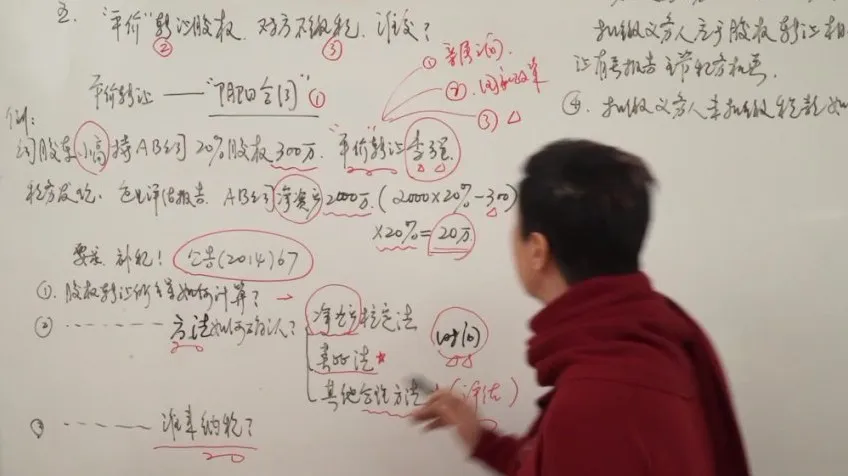 五. "平价"转让股权, 对方不缴税, 谁交?
② ③
平价转让 —— "阴阳合同" ①
① 亲属之间.
②. 国企改革
③ △
例:
公司股东小高持AB公司20%股权300万. "平价"转让李强.
税务发现: 评估报告. AB公司净资产2000万. (2000×20%-300)
×20% = 20万.
要求: 补税! 公告(2014)67
①. 股权转让所得如何计算? →
② ------ 方法如何确认?
净资产核定法
类比法 *
其他合理方法 (评估)
③ ------ 谁来纳税?
扣缴义务人应于股权转让相
让有关报告主管税务机关.
④. 扣缴义务人未扣缴税款如